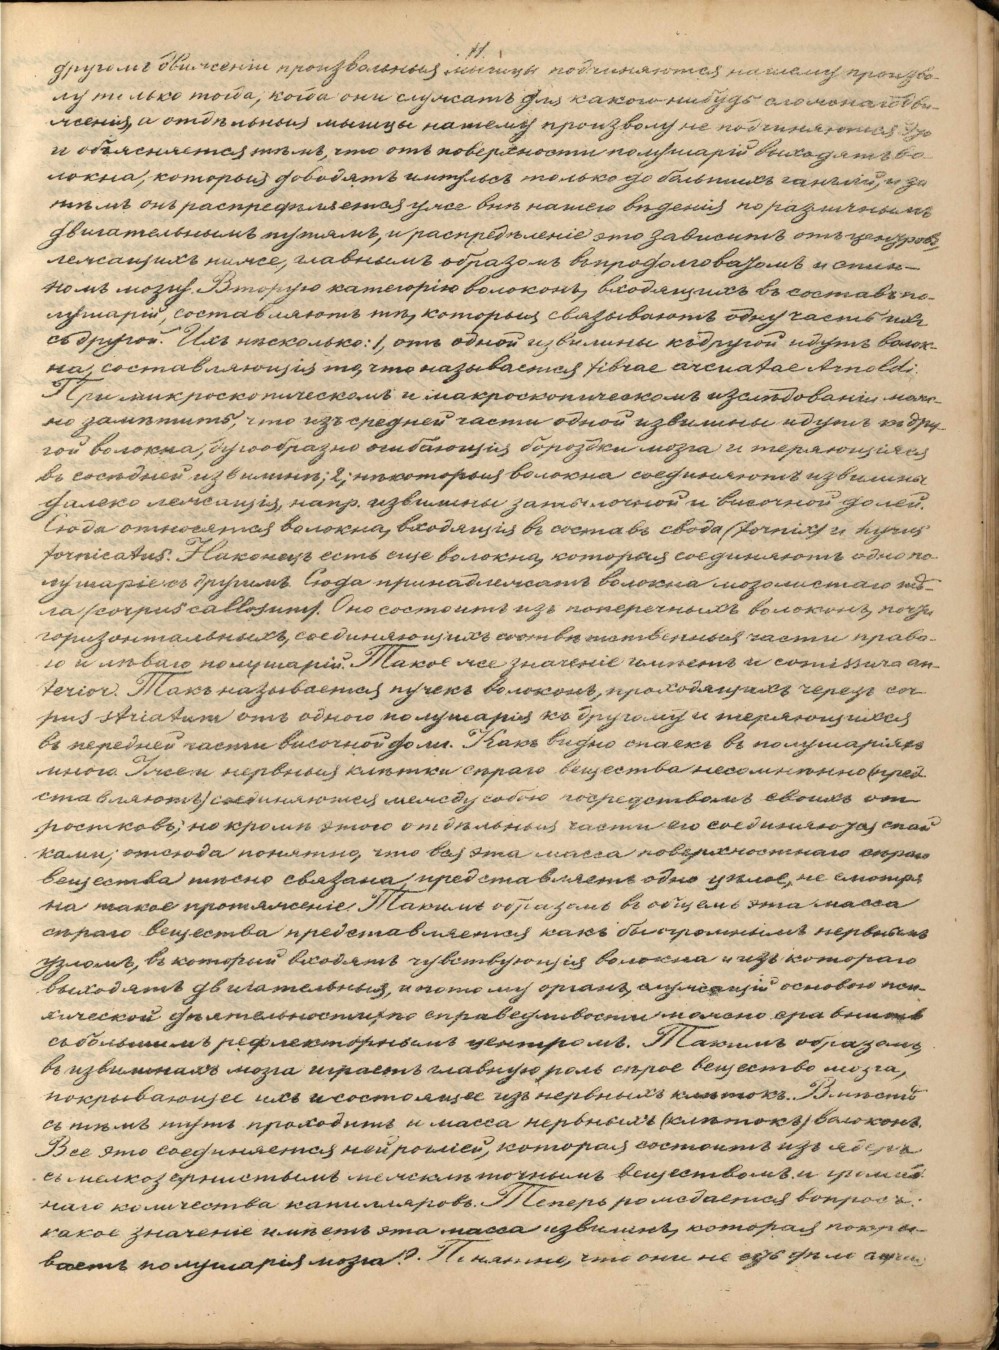 11.
другомъ движеніи произвольныя мышцы подчиняются нашему произво-
лу только тогда, когда они служатъ для какого-нибудь сложнаго дви-
женія, а отдѣльныя мышцы нашему произволу не подчиняются. Это
и объясняется тѣмъ, что отъ поверхности полушарій выходятъ во-
локна, которыя доводятъ импульсъ только до большихъ ганглій, и за
тѣмъ онъ распредѣляется уже внѣ нашего вѣденія по различнымъ
двигательнымъ путямъ, и распредѣленіе это зависитъ отъ центровъ
лежащихъ ниже, главнымъ образомъ въ продолговатомъ и спин-
номъ мозгу. Вторую категорію волоконъ, входящихъ въ составъ по-
лушарій, составляютъ тѣ, которыя связываютъ одну часть ихъ
съ другой. Ихъ нѣсколько: 1, отъ одной извилины къ другой идутъ волок-
на, составляющія то, что называется fibrae arcuatae Arnoldi.
При микроскопическомъ и макроскопическомъ изслѣдованіи мож-
но замѣтить, что изъ средней части одной извилины идутъ къ дру-
гой волокна, дугообразно огибающія бороздки мозга и теряющіяся
въ сосѣдней извилинѣ; 2, нѣкоторыя волокна соединяютъ извилины
далеко лежащія, напр. извилины затылочной и височной долей.
Сюда относятся волокна, входящія въ составъ свода (fornix) и hyrus
fornicatus. Наконецъ есть еще волокна, которыя соединяютъ одно по
лушаріе съ другимъ. Сюда принадлежатъ волокна мозолистаго тѣ-
ла (corpus callosum). Оно состоитъ изъ поперечныхъ волоконъ, почти
горизонтальныхъ, соединяющихъ соотвѣтственныя части право-
го и лѣваго полушарій. Такое же значеніе имѣетъ и comissura an-
terior. Такъ называется пучекъ волоконъ, проходящихъ черезъ cor-
pus striatum отъ одного полушарія къ другому и теряющихся
въ передней части височной доли. Какъ видно спаекъ въ полушаріяхъ
много. Уже и нервныя клѣтки сѣраго вещества несомнѣнно (пред
ставляютъ) соединяются между собою посредствомъ своихъ от-
ростковъ; но кромѣ этого отдѣльныя части его соединяются спай
ками; отсюда понятно, что вся эта масса поверхностнаго сѣраго
вещества тѣсно связана, представляетъ одно цѣлое, не смотря
на такое протяженіе. Такимъ образомъ въ общемъ эта масса
сѣраго вещества представляется какъ бы огромнымъ нервнымъ
узломъ, въ который входятъ чувствующія волокна и изъ котораго
выходятъ двигательныя, и потому органъ, служащій основою пси-
хической дѣятельности, по справедливости можно сравнить
съ большимъ рефлекторнымъ центромъ. Такимъ образомъ,
въ извилинахъ мозга играетъ главную роль сѣрое вещество мозга,
покрывающее ихъ и состоящее изъ нервныхъ клѣтокъ. Вмѣстѣ
съ тѣмъ тутъ проходитъ и масса нервныхъ (клѣтокъ) волоконъ.
Все это соединяется нейрогліей, которая состоитъ изъ ядеръ
съ мелкозернистымъ межклѣточнымъ веществомъ и громад
наго количества капилляровъ. Теперь рождается вопросъ:
какое значеніе имѣетъ эта масса извилинъ, которая покры-
ваетъ полушарія мозга? Понятно, что они не суть дѣло случая